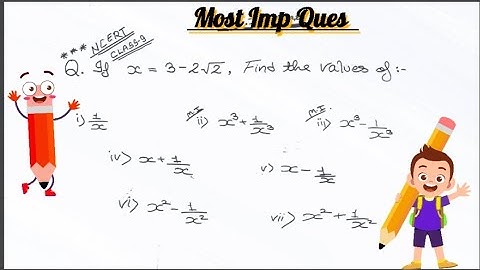 Most Imp Ques
*** NCERT
CLASS-9
Q. If x = 3-2√2, Find the values of :-
i) 1/x
M.I ii) x³+1/x³
M.I. iii) x³-1/x³
iv) x+1/x
v) x-1/x
vi) x²-1/x²
vii) x²+1/x²